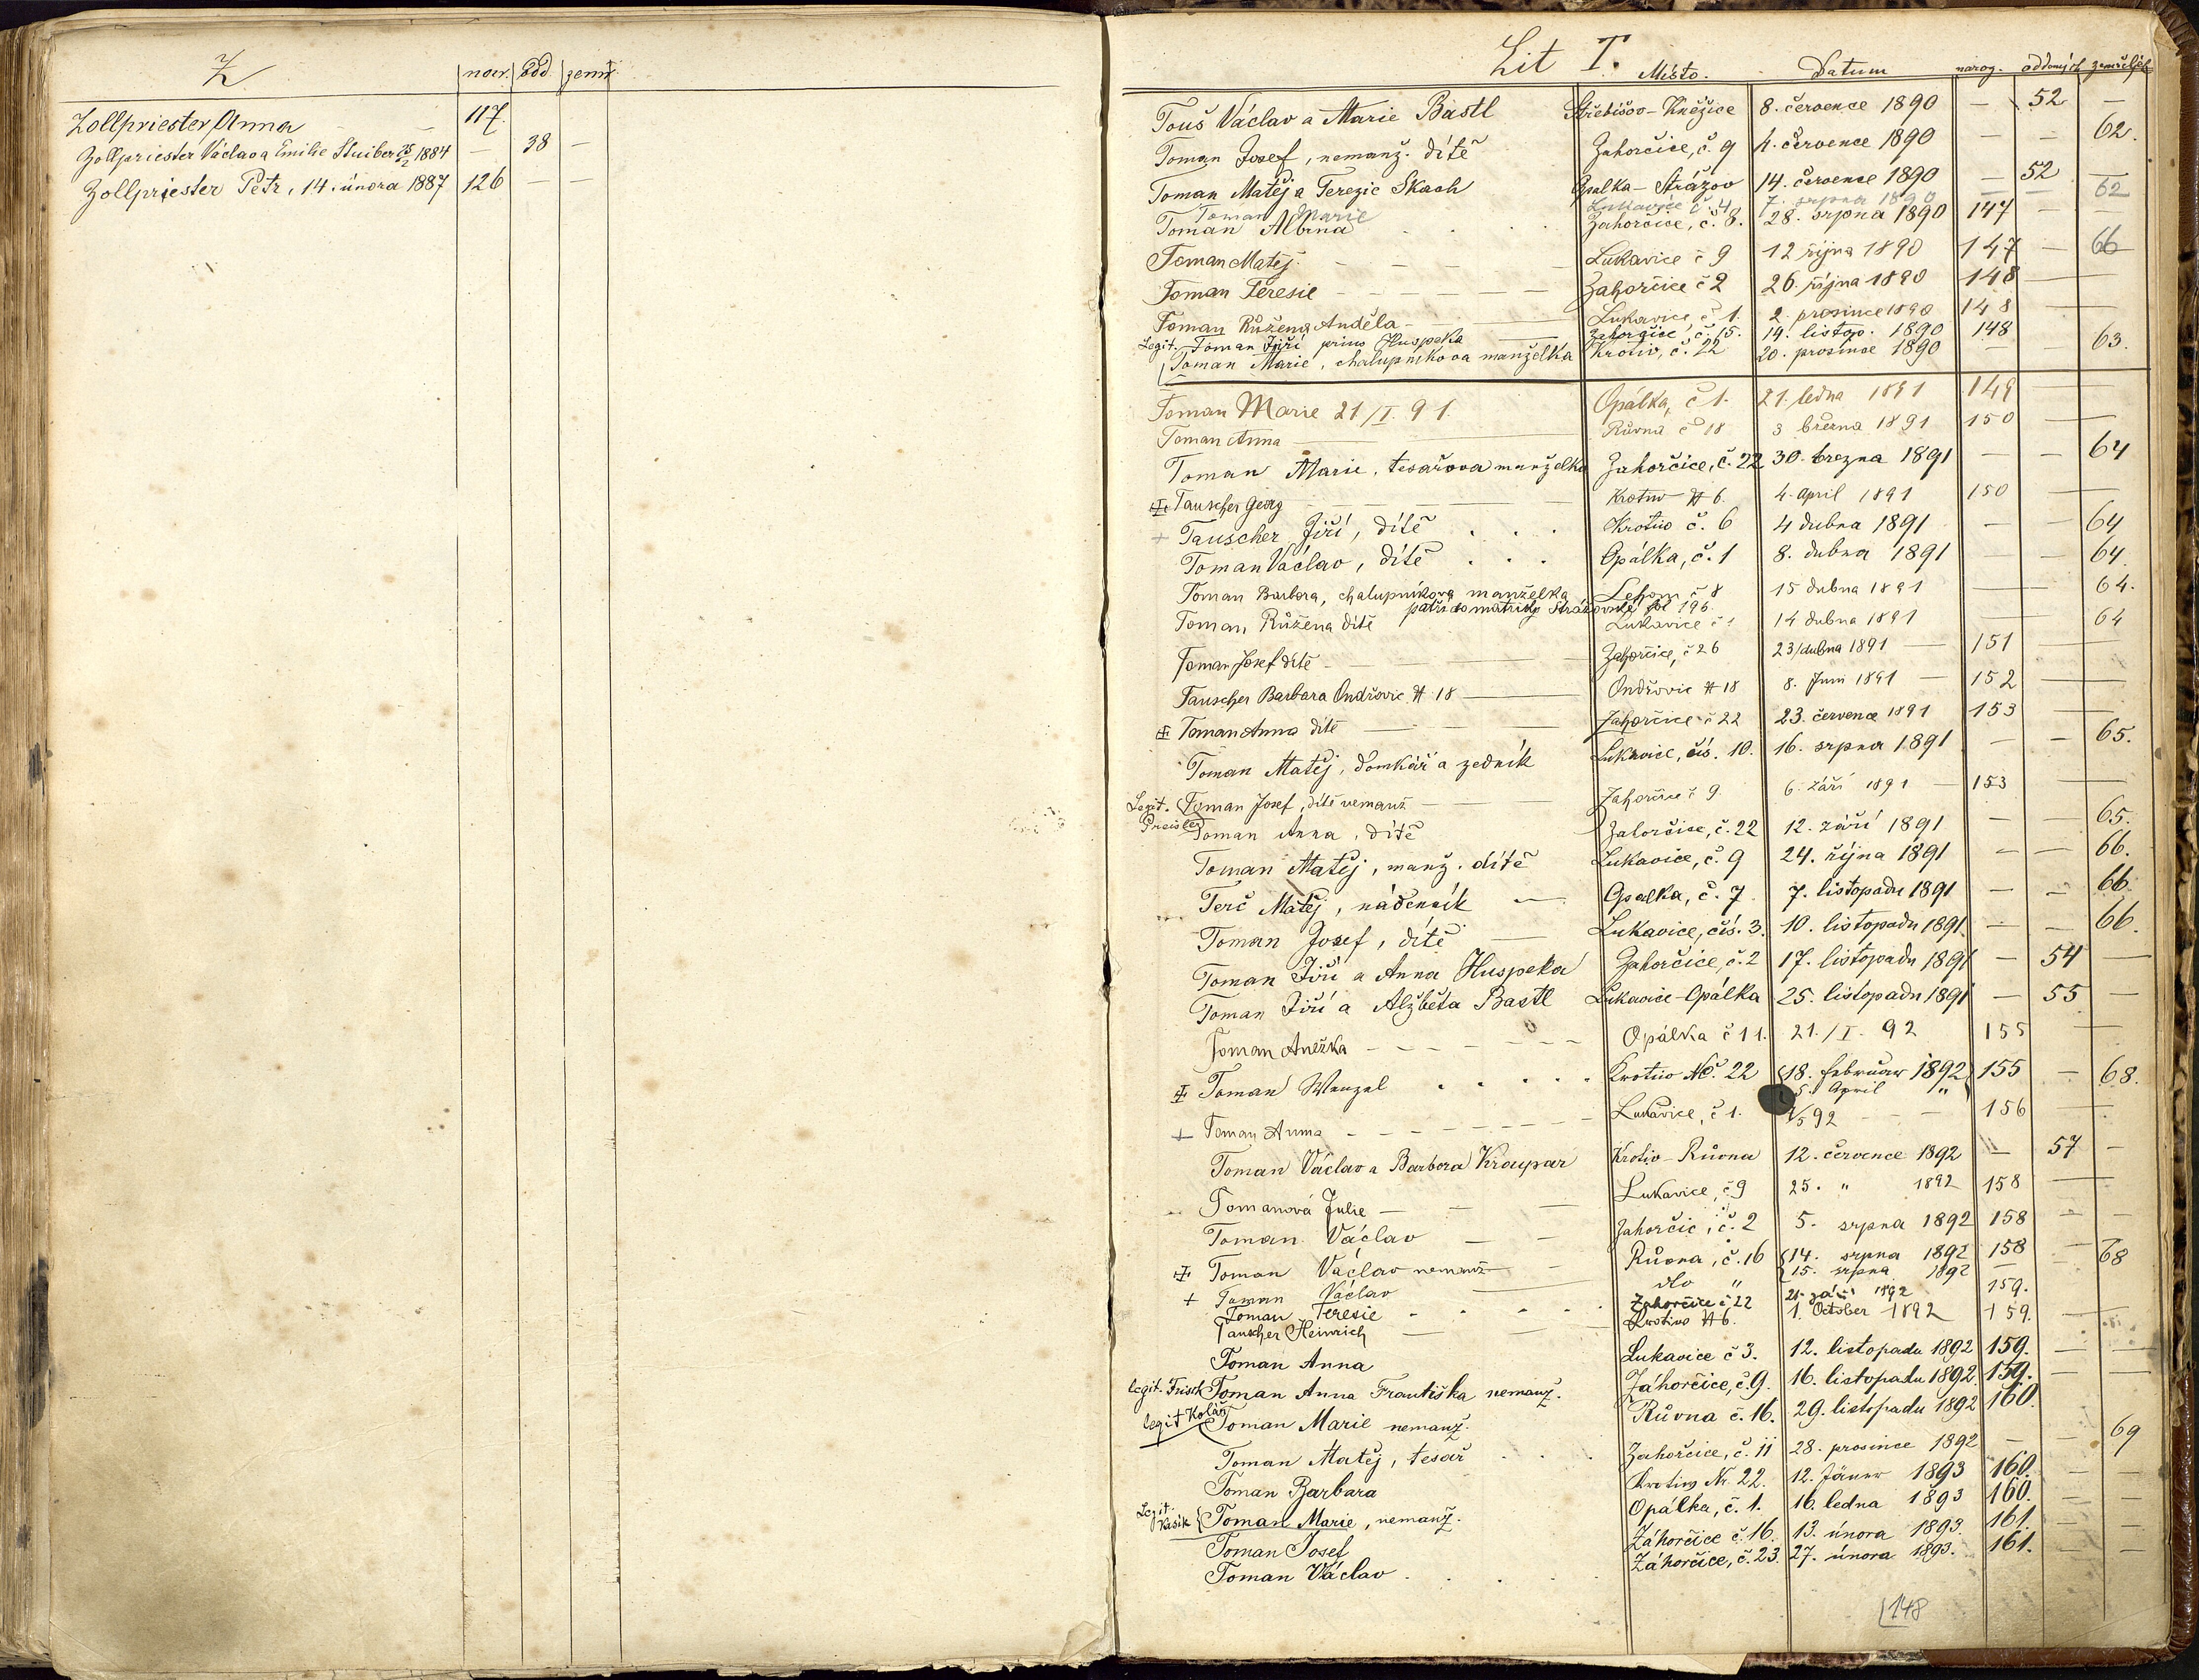 Z naro. odd. zemř.
Zollpriester Anna — — 117.
Zollpriester Václav a Emilie Stuiber 25/2 1884 — 38 —
Zollpriester Petr, 14. února 1887 126 — —
Lit T. Místo. Datum naroz. oddaných zemřelých
Touš Václav a Marie Bastl Střebišov-Kněžice 8. července 1890 — 52 —
Toman Josef, nemanž. dítě Zahorčice, č. 9 4. července 1890 — — 62.
Toman Matěj a Terezie Skach Opalka-Strážov 14. července 1890 — 52 —
Toman Marie Lukavice č. 4 7. srpna 1890 — — 62
Toman Albina Zahorčice, č. 8. 28. srpna 1890 147 — —
Toman Matěj Lukavice č 9 12 října 1890 147 — 66
Toman Teresie Zahorčice č 2 26. října 1890 148 —
Toman Růžena Anděla Lukavice č 1. 2. prosince 1890 148 —
Legit. Toman Jiří prius Huspeka Zahorčice, č. 15. 14. listop. 1890 148
Toman Marie, chalupníkova manželka Krotiv, č. 22 20. prosince 1890 — 63.
Toman Marie 21/I. 91. Opálka, č 1. 21. ledna 1891 149 —
Toman Anna Růvna č 18 3 března 1891 150 —
Toman Marie, tesařova manželka Zahorčice, č. 22 30. března 1891 — — 64
Tauscher Georg Krotiw # 6. 4. April 1891 150 —
+ Tauscher Jiří, dítě Krotiv č. 6 4 dubna 1891 — 64
Toman Václav, dítě Opálka, č. 1 8. dubna 1891 — — 64
Toman Barbora, chalupníkova manželka Lehom č 8 15 dubna 1891 — 64.
patří do matriky Strážovské fol 196.
Toman Růžena dítě Lukavice č 1 14 dubna 1891 — 64
Toman Josef dítě Zahorčice, č 26 23/dubna 1891 — 151 —
Tauscher Barbara Ondřovic # 18 Ondřovic # 18 8. Juni 1891 — 152 —
Toman Anna dítě Zahorčice č 22 23. července 1891 153 —
Toman Matěj, domkář a zedník Lukavice, čís. 10. 16. srpna 1891 — — 65.
Legit. Preisler Toman Josef, dítě nemanž Zahorčice č 9. 6. září 1891 — 153 —
Toman Anna, dítě Zahorčice, č. 22 12. září 1891 — — 65.
Toman Matěj, manž. dítě Lukavice, č. 9 24. října 1891 — — 66.
Terč Matěj, nádenník Opalka, č. 7. 7. listopadu 1891 — — 66.
Toman Josef, dítě Lukavice, čís. 3. 10. listopadu 1891 — — 66.
Toman Jiří a Anna Huspeka Zahorčice, č. 2 17. listopadu 1891 — 54 —
Toman Jiří a Alžběta Bastl Lukavice-Opálka 25. listopadu 1891 — 55 —
Toman Anežka Opálka č 11. 21./I. 92 155 —
Toman Wenzel Krotiv Nč. 22 18. februar 1892 155 — 68.
5. April "
+ Toman Anna Lukavice, č 1. /5 92 156 —
Toman Václav a Barbora Kraupar Krotiv-Růvna 12. července 1892 — 57 —
Tomanová Julie Lukavice, č 9 25. " 1892 158 —
Toman Václav Zahorčic, č. 2 5. srpna 1892 158 — —
Toman Václav nemanž Růvna, č. 16 14. srpna 1892 158 —
+ Toman Václav dto " 15. srpna 1892 — 68
Toman Teresie Zahorčice č 22 21. září 1892 159.
Tauscher Heinrich Krotiw # 6. 1. October 1892 159. —
Toman Anna Lukavice č 3. 12. listopadu 1892 159. —
legit. Frisch Toman Anna Františka nemanž. Záhorčice, č. 9. 16. listopadu 1892. 159. —
legit Kolář Toman Marie nemanž. Růvna č. 16. 29. listopadu 1892 160.
Toman Matěj, tesař Zahorčice, č. 11 28. prosince 1892 — — 69
Toman Barbara Krotiw Nr. 22. 12. Jänner 1893 160. —
Legit. Kasík Toman Marie, nemanž. Opálka, č. 1. 16. ledna 1893 160. —
Toman Josef Záhorčice č. 16. 13. února 1893. 161. —
Toman Václav Záhorčice, č. 23. 27. února 1893. 161. —
148